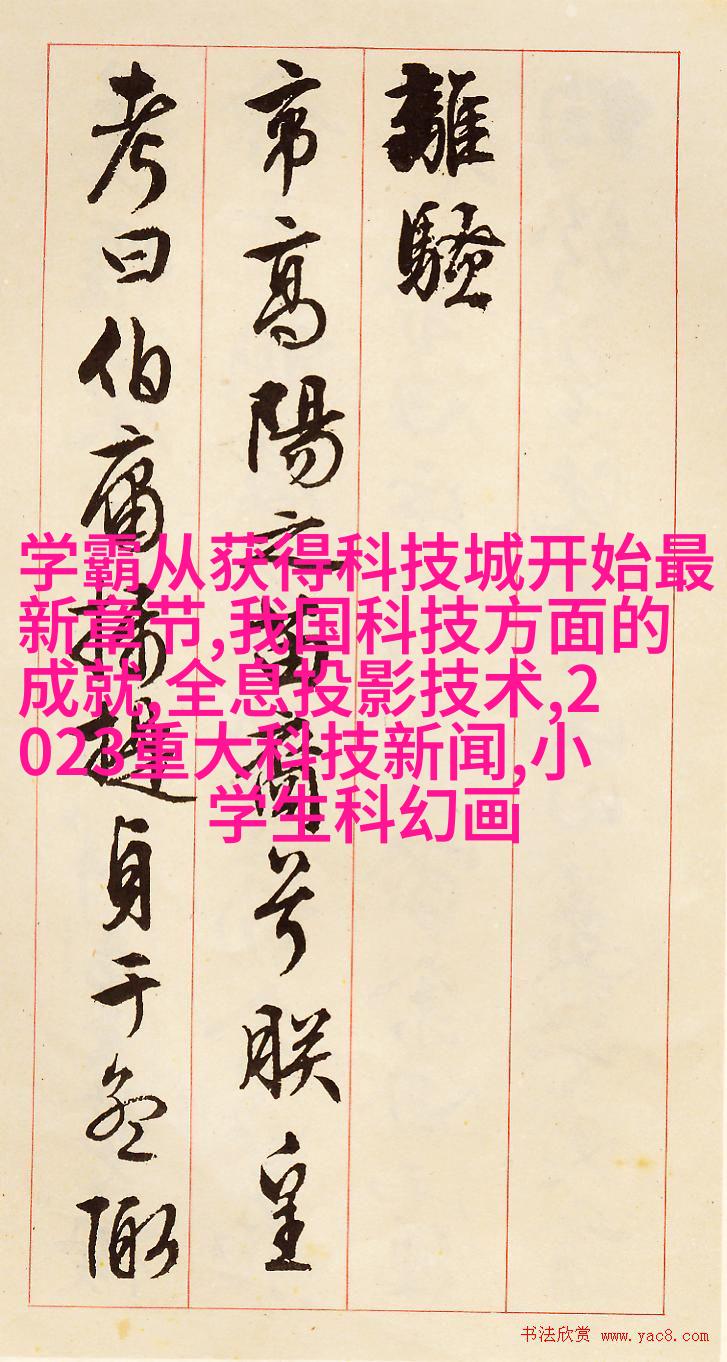 離騷
帝高陽之苗裔兮朕皇
考曰伯庸攝提貞于孟陬
学霸从获得科技城开始最
新章节,我国科技方面的
成就,全息投影技术,2
023重大科技新闻,小
学生科幻画
书法欣赏 www.yac8.com